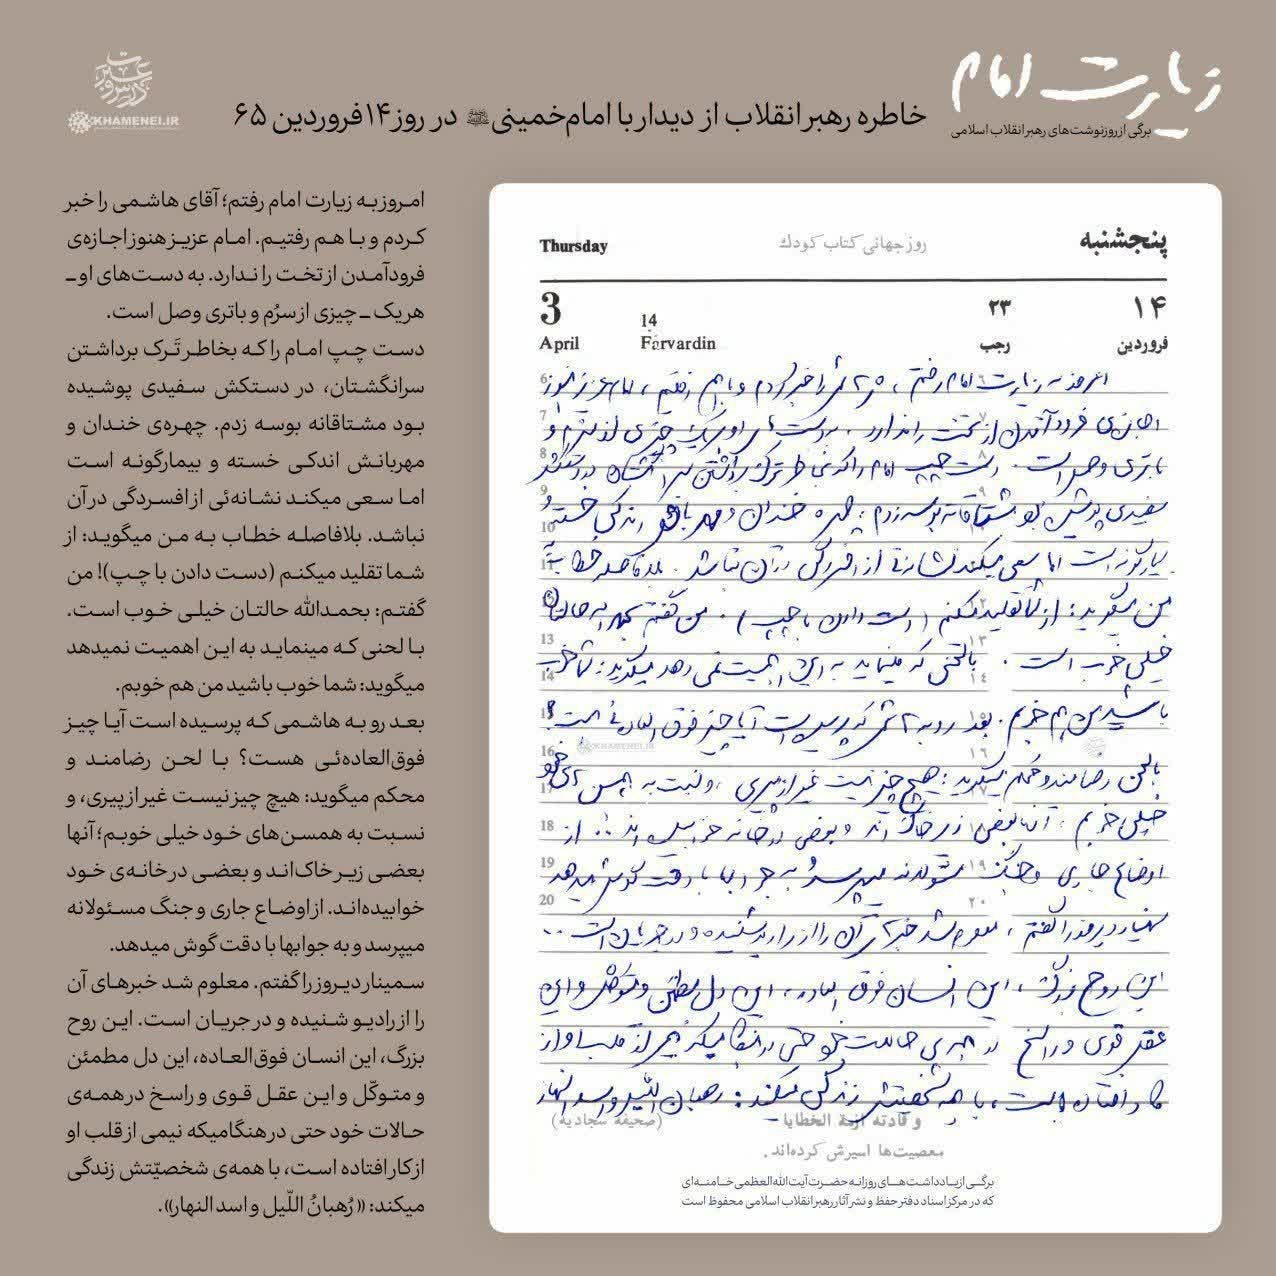 زیارت امام
برگی از روزنوشت‌های رهبر انقلاب اسلامی
خاطره رهبر انقلاب از دیدار با امام خمینی در روز ۱۴ فروردین ۶۵
درس و عبرت
KHAMENEI.IR
پنجشنبه
روز جهانی کتاب کودك
Thursday
۱۴
۲۳
14
3
فروردین
رجب
Farvardin
April
امروز به زیارت امام رفتم، هاشمی را خبر کردم و با هم رفتیم، امام عزیز هنوز
اجازه‌ی فرود آمدن از تخت را ندارد. به دست‌های او هریک چیزی از سِرُم و
باتری وصل است. دست چپ امام را که بخاطر ترک برداشتن سرانگشتان در دستکش
سفیدی پوشیده بود مشتاقانه بوسه زدم، چهره خندان و مهربانش اندکی خسته و
بیمارگونه است اما سعی میکند نشانه‌ئی از افسردگی در آن نباشد. بلافاصله خطاب به
من میگوید: از شما تقلید میکنم (دست دادن با چپ). من گفتم بحمدالله حالتان
خیلی خوب است. با لحنی که مینماید به این اهمیت نمی‌دهد میگوید: شما خوب
باشید من هم خوبم. بعد رو به هاشمی که پرسیده است آیا چیز فوق العاده‌ئی هست؟
با لحن رضامند و محکم میگوید: هیچ چیز نیست غیر از پیری، و نسبت به همسن‌های خود
خیلی خوبم، آنها بعضی زیر خاک‌اند و بعضی در خانه خوابیده‌اند... از
اوضاع جاری و جنگ مسئولانه میپرسد و به جوابها با دقت گوش میدهد
سمینار دیروز را گفتم، معلوم شد خبرهای آن را از رادیو شنیده و در جریان است...
این روح بزرگ، این انسان فوق العاده، این دل مطمئن و متوکّل و این
عقل قوی و راسخ در همه‌ی حالات خود حتی در هنگامیکه نیمی از قلب او از
کار افتاده است، با همه شخصیتش زندگی میکند: رهبان اللیل و اسد النهار
و قادته ازمة الخطایا
(صحیفه سجادیه)
معصیت‌ها اسیرش کرده‌اند.
برگی از یادداشت‌های روزانه حضرت آیت‌الله العظمی خامنه‌ای
که در مرکز اسناد دفتر حفظ و نشر آثار رهبر انقلاب اسلامی محفوظ است
امروز به زیارت امام رفتم؛ آقای هاشمی را خبر
کردم و با هم رفتیم. امام عزیز هنوز اجازه‌ی
فرودآمدن از تخت را ندارد. به دست‌های او ـ
هریک ـ چیزی از سرُم و باتری وصل است.
دست چپ امام را که بخاطر تَرک برداشتن
سرانگشتان، در دستکش سفیدی پوشیده
بود مشتاقانه بوسه زدم. چهره‌ی خندان و
مهربانش اندکی خسته و بیمارگونه است
اما سعی میکند نشانه‌ئی از افسردگی در آن
نباشد. بلافاصله خطاب به من میگوید: از
شما تقلید میکنم (دست دادن با چپ)! من
گفتم: بحمدالله حالتان خیلی خوب است.
با لحنی که مینماید به این اهمیت نمیدهد
میگوید: شما خوب باشید من هم خوبم.
بعد رو به هاشمی که پرسیده است آیا چیز
فوق‌العاده‌ئی هست؟ با لحن رضامند و
محکم میگوید: هیچ چیز نیست غیر از پیری، و
نسبت به همسن‌های خود خیلی خوبم؛ آنها
بعضی زیر خاک‌اند و بعضی در خانه‌ی خود
خوابیده‌اند. از اوضاع جاری و جنگ مسئولانه
میپرسد و به جوابها با دقت گوش میدهد.
سمینار دیروز را گفتم. معلوم شد خبرهای آن
را از رادیو شنیده و در جریان است. این روح
بزرگ، این انسان فوق‌العاده، این دل مطمئن
و متوکّل و این عقل قوی و راسخ در همه‌ی
حالات خود حتی در هنگامیکه نیمی از قلب او
از کار افتاده است، با همه‌ی شخصیّتش زندگی
میکند: «رُهبانُ اللّیل و اسد النهار».